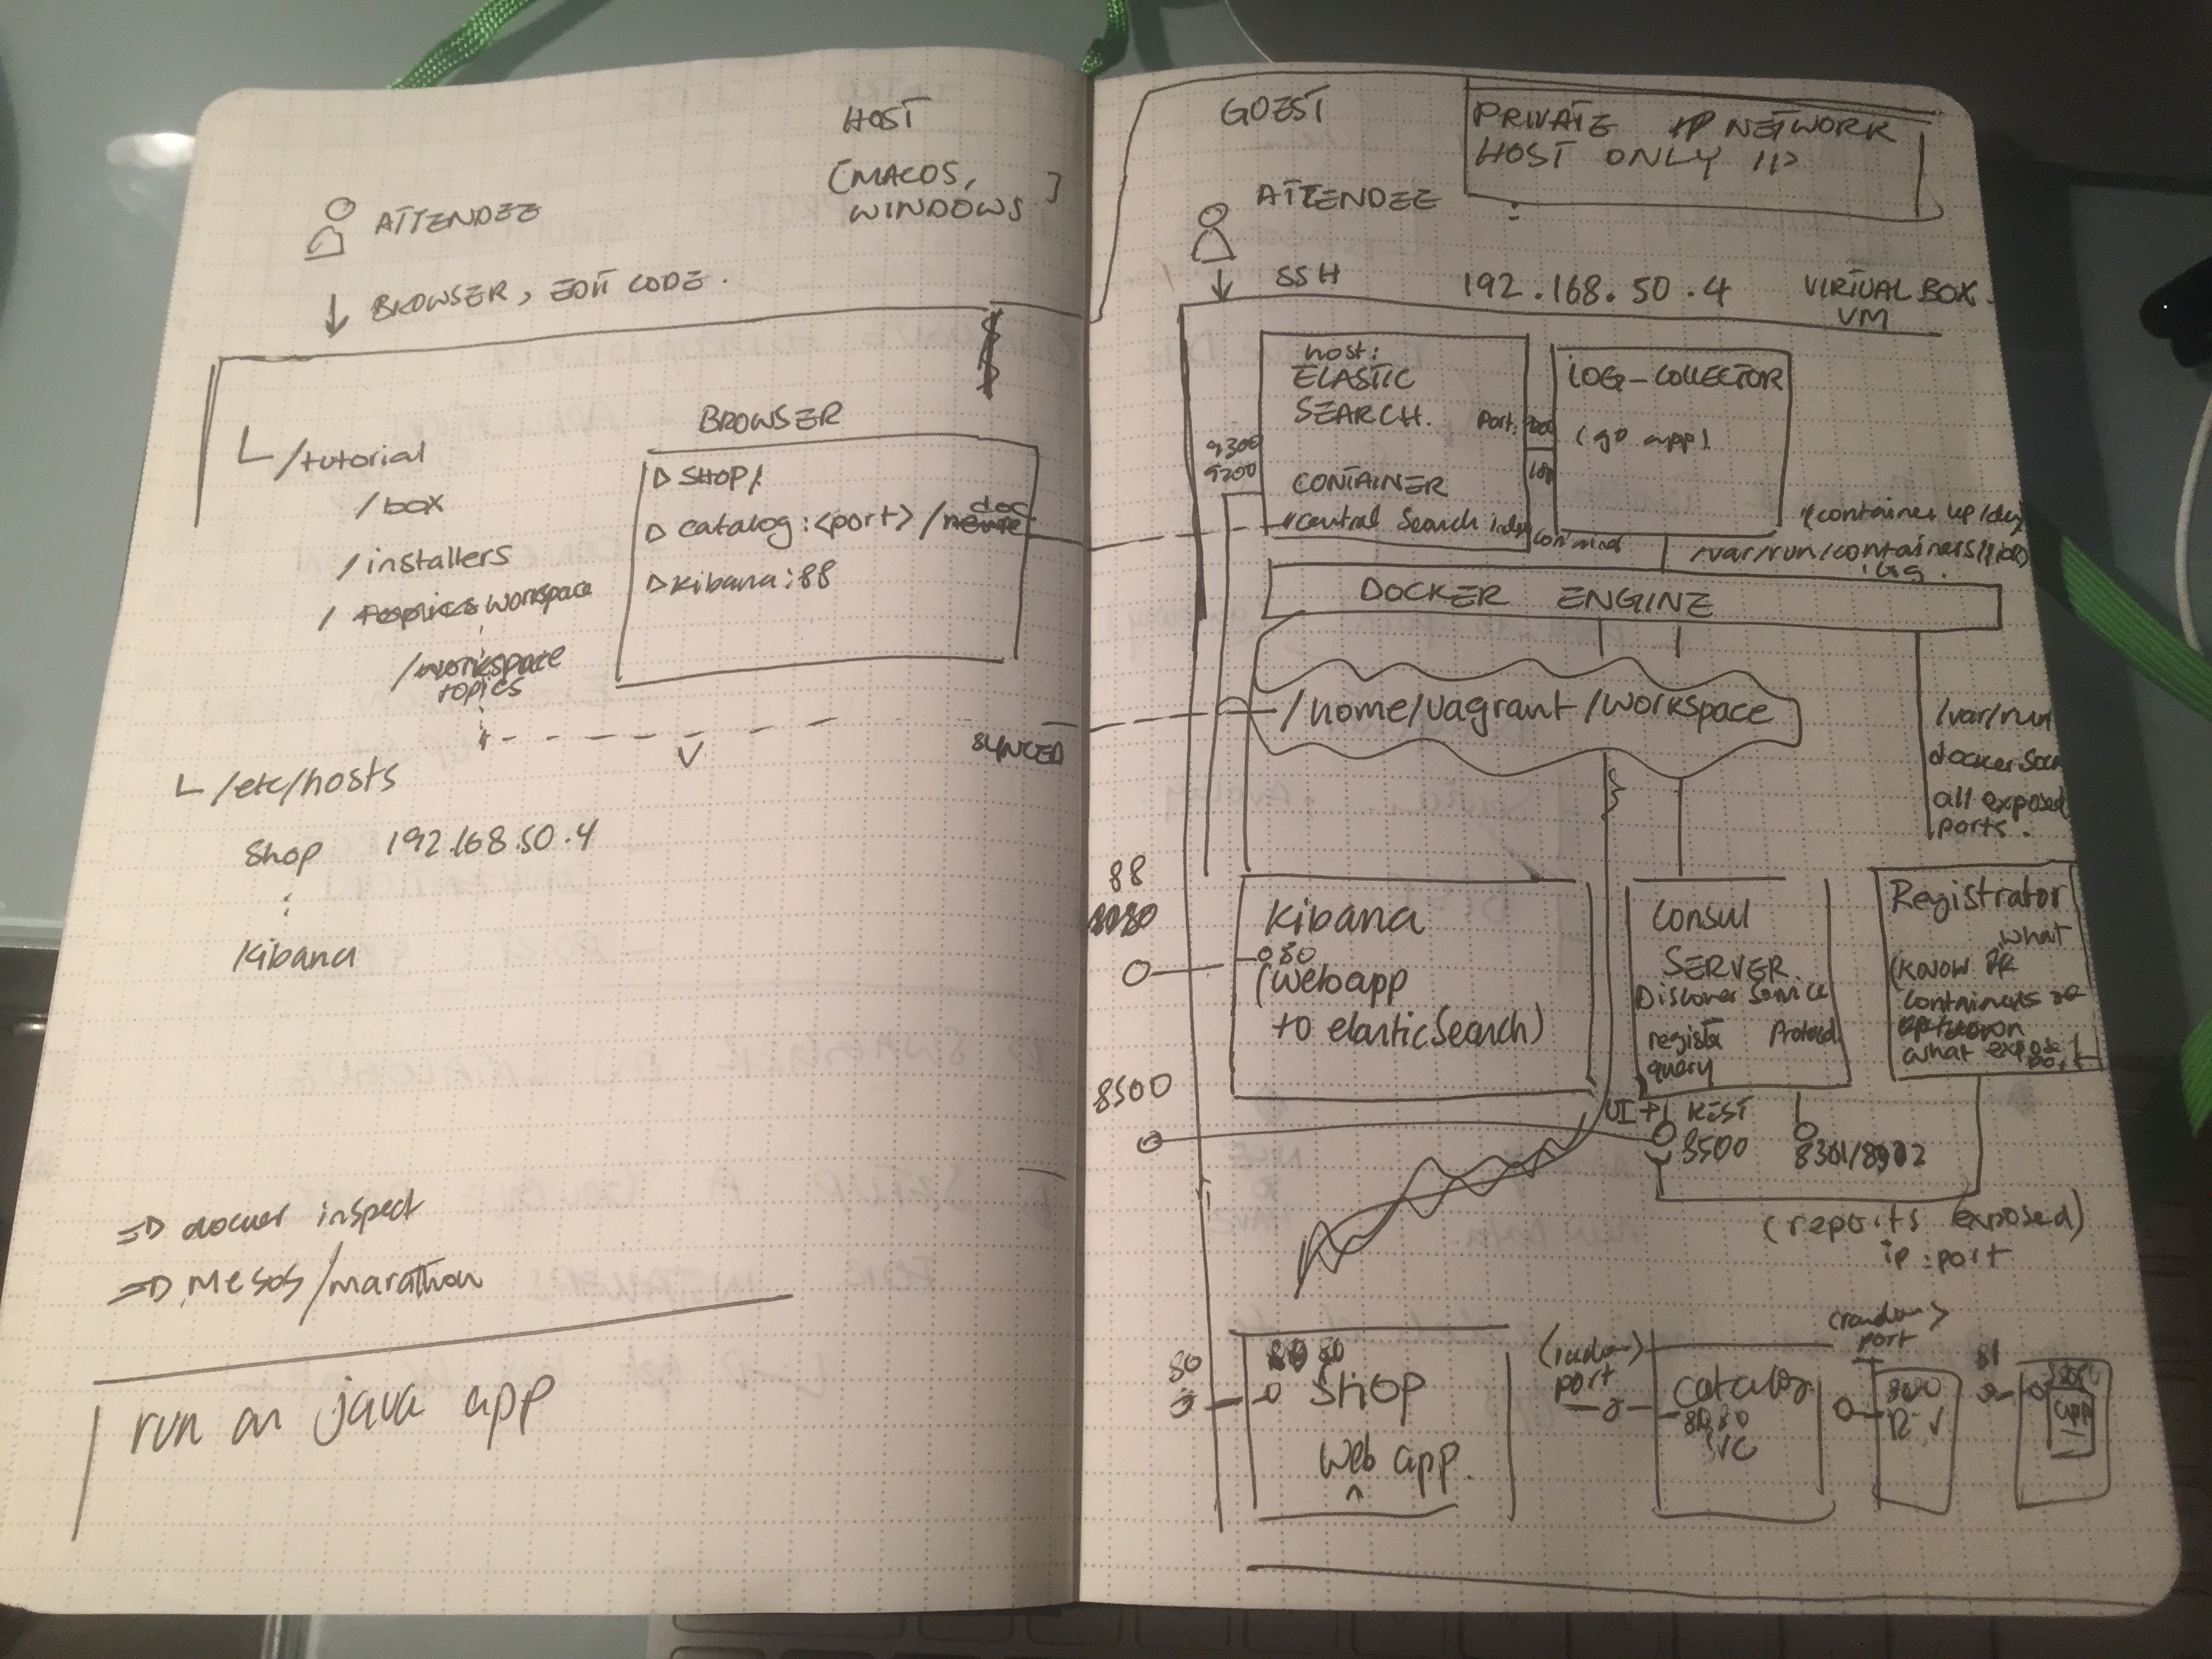 HOST
[MACOS,
WINDOWS]
ATTENDEE
BROWSER, EDIT CODE.
/tutorial
/box
/installers
/ workspace
/workspace
topics
BROWSER
SHOP/
catalog:<port>/
doc
kibana:88
SYNCED
/etc/hosts
shop 192.168.50.4
:
kibana
=> docker inspect
=> Mesos/marathon
run an java app
GUEST
PRIVATE IP NETWORK
HOST ONLY
ATTENDEE
SSH 192.168.50.4 VIRTUAL BOX
VM
host:
ELASTIC
SEARCH.
9300
9200
CONTAINER
central Search index
Port:
LOG-COLLECTOR
(go app)
(container up/
/var/run/containers/
DOCKER ENGINE
/home/vagrant/workspace
/var/run
docker sock
all exposed
ports.
88
8080
kibana
(webapp
to elasticSearch)
8500
Consul
SERVER.
Discover Service
register Protocol
query
UI + REST
8500
8301/8902
Registrator
what
(know
containers
what expose
port
(reports exposed)
ip:port
80
80
SHOP
web app.
(random)
port
catalog
8080
SVC
(random)
port
8080
81
app